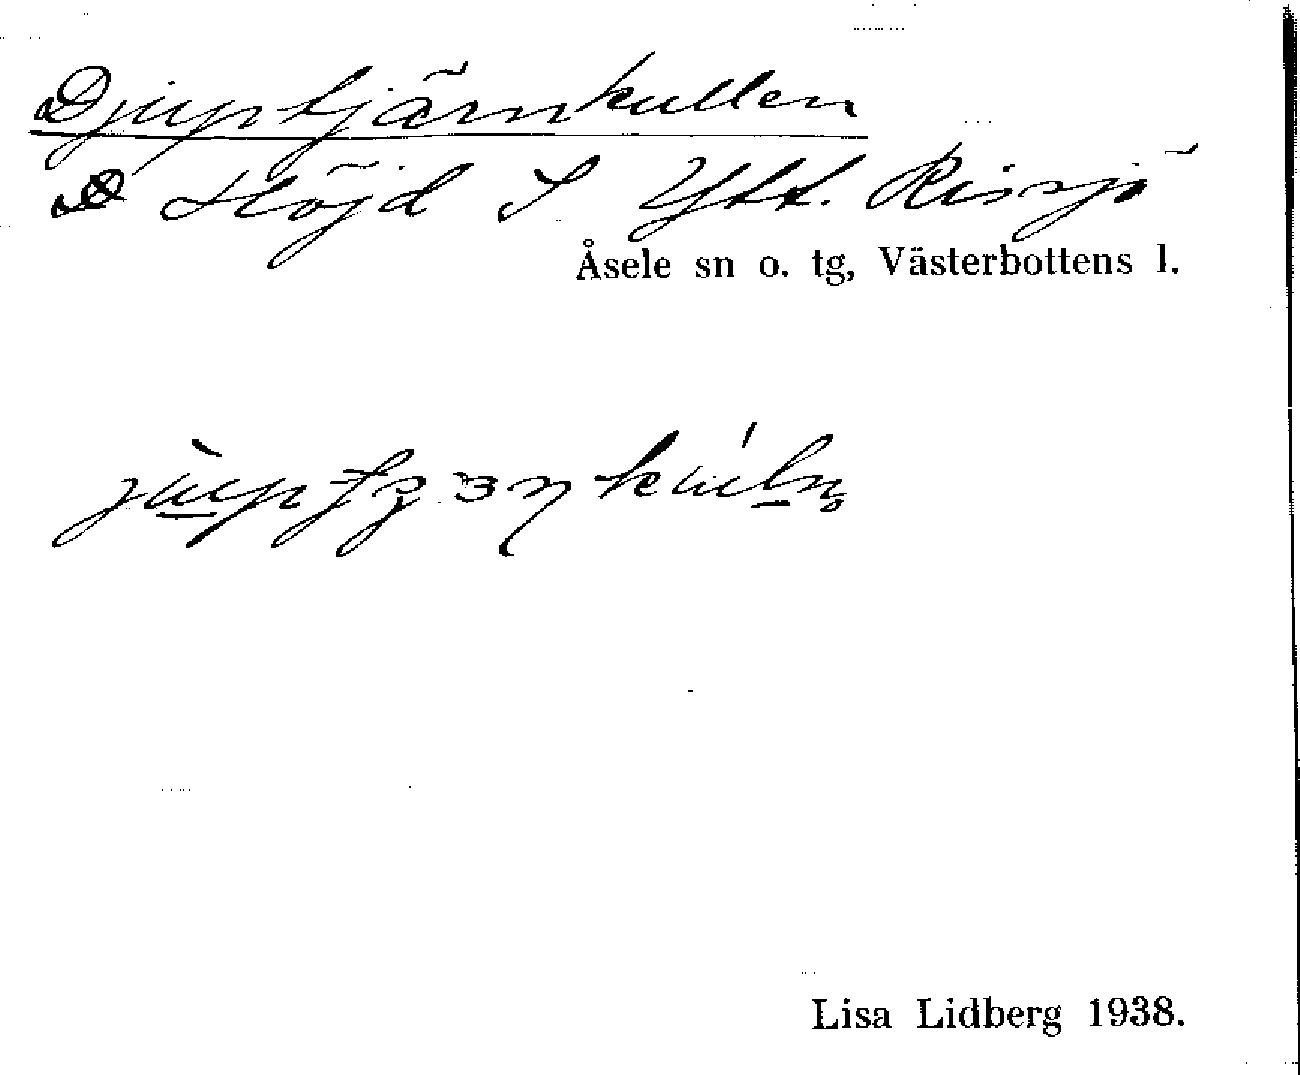 Djuptjärnkullen
Höjd S Ytt. Rissjö
Åsele sn o. tg, Västerbottens l.
Lisa Lidberg 1938.